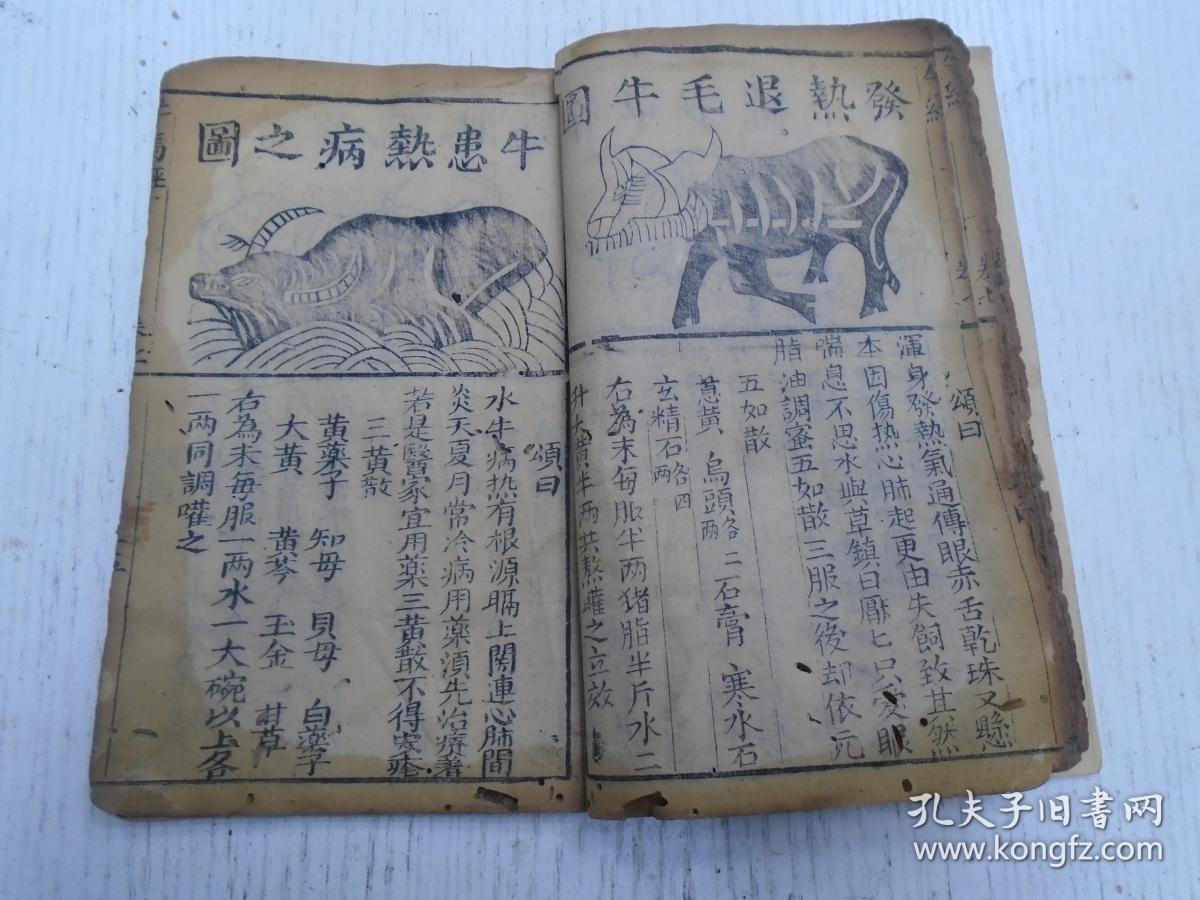 發熱退毛牛圖
頌曰
渾身發熱氣通傳眼赤舌乾珠又懸
本因傷热心肺起更由失飼致其然
喘息不思水與草鎮日厭匕只愛眠
脂油調蜜五如散三服之後却依元
五如散
蔥黃 烏頭各二两 石膏 寒水石
玄精石各四两
右為末每服半两猪脂半斤水二
升大黄半两共熬雚之立效
牛患熱病之圖
頌曰
水牛病热有根源膈上関連心肺間
炎天夏月常冷病用藥須先治療著
若是醫家宜用藥三黄散不得
三黄散
黄藥子 知母 貝母 白藥子
大黄 黄琴 玉金 甘草
右為末每服一两水一大碗以上各
一两同調嚾之
孔夫子旧书网
www.kongfz.com